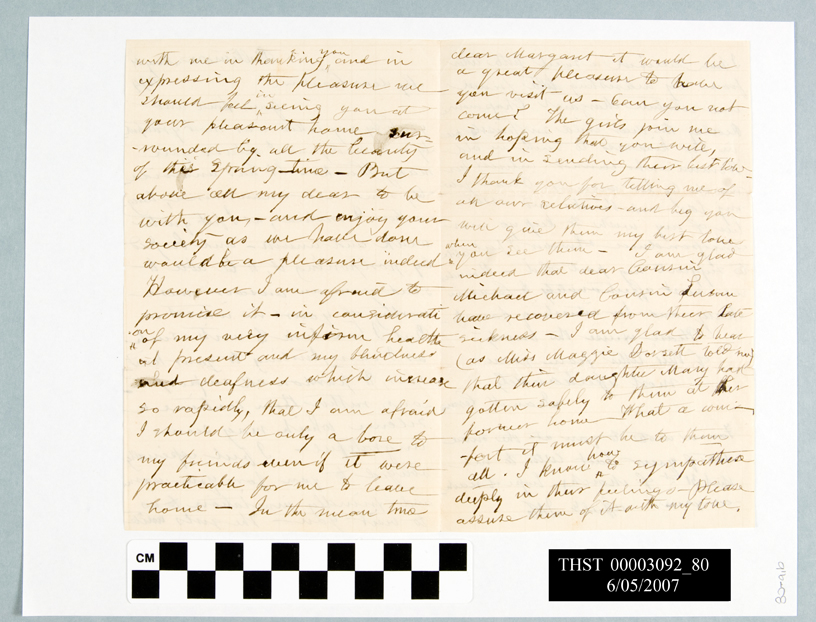 with me in thanking you and in
expressing the pleasure we
should feel in seeing you at
your pleasant home sur-
-rounded by all the beauty
of this Spring-time - But
above all my dear to be
with you, - and enjoy your
society as we have done
would be a pleasure indeed
However I am afraid to
promise it - in considerati
on of my very infirm health
at present and my blindness
and deafness which increase
so rapidly, that I am afraid
I should be only a bore to
my friends even if it were
practicable for me to leave
home - In the mean time
dear Margaret it would be
a great pleasure to have
you visit us - Can you not
come? The girls join me
in hoping that you will,
and in sending their best love-
I thank you for telling me of
all our relatives - and beg you
will give them my best love
when you see them - I am glad
indeed that dear Cousin
Michael and Cousin
have recovered from their late
sickness - I am glad to hear
(as Miss Maggie Dorsett told me)
that their daughter Mary had
gotten safely to them at her
former home - What a com-
-fort it must be to them
all. I know how to sympathise
deeply in their feelings - Please
assure them of it with my love.
CM
THST 00003092_80
6/05/2007
80-a,b